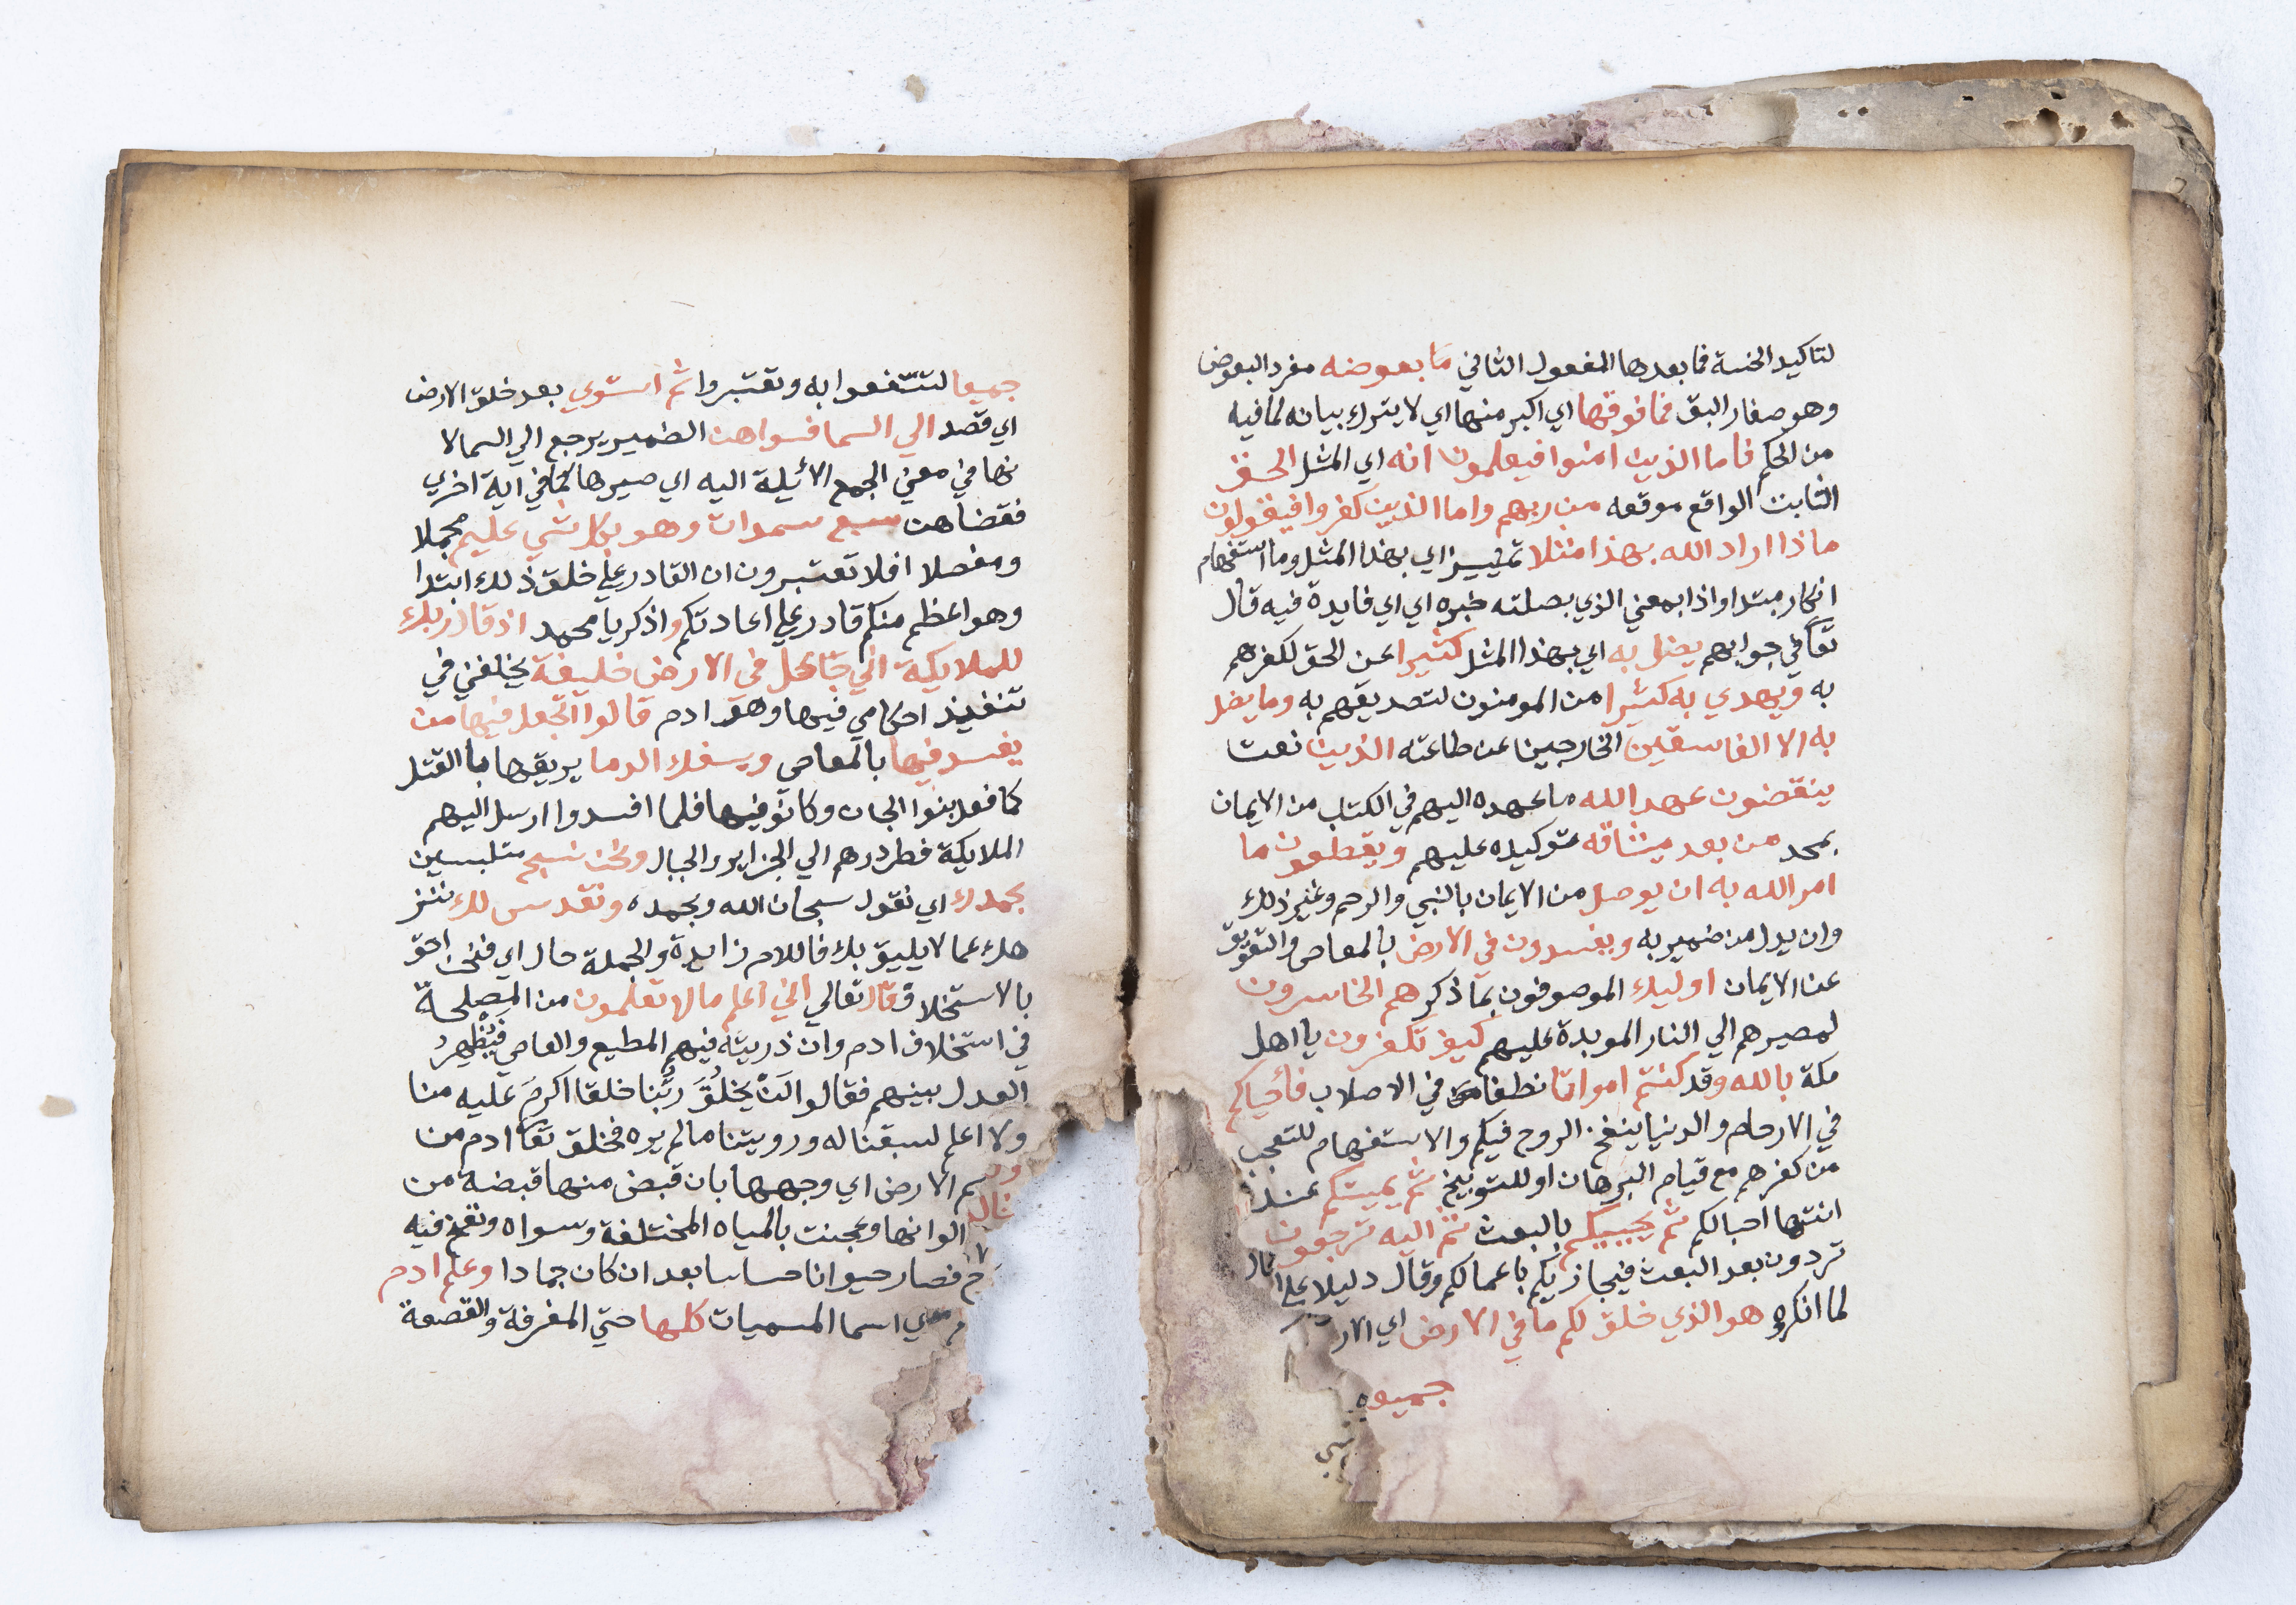 لتاكيد الخسة فما بعدها المفعول الثاني ما بعوضه مفرد البعوض
وهو صغار البق فما فوقها اي اكبر منها اي لا يترك بيانه لما فيه
من الحكم فاما الذين امنوا فيعلمون انه اي المثل الحق
الثابت الواقع موقعه من ربهم واما الذين كفروا فيقولون
ماذا اراد الله بهذا مثلا تمييز اي بهذا المثل وما استفهام
انكار مبتدا واذا بمعني الذي بصلته خبره اي اي فايدة فيه قال
تعا في جوابهم يضل به اي بهذا المثل كثيرا عن الحق لكفرهم
به ويهدي به كثيرا من المومنون لتصديقهم به وما يضل
به الا الفاسقين الخارجين عن طاعته الذين نعت
ينقضون عهد الله ما عهده اليهم في الكتاب من الايمان
بمحد من بعد ميثاقه توكيده عليهم ويقطعون ما
امر الله به ان يوصل من الايمان بالنبي والرحم وغير ذلك
وان بدل من ضمير به ويفسدون في الارض بالمعاصي والتعويق
عن الايمان اوليك الموصوفون بما ذكر هم الخاسرون
لمصيرهم الي النار الموبدة عليهم كيف تكفرون يا اهل
مكة بالله وقد كنتم امواتا نطفا في الاصلاب فأحياكم
في الارحام والدنيا ينفخ الروح فيكم والاستفهام للتعجب
من كفرهم مع قيام البرهان او للتوبيخ ثم يميتكم عند
انتها اجالكم ثم يحييكم بالبعث ثم اليه ترجعون
تردون بعد البعث فيجازيكم باعمالكم وقال دليلا علي
لما انكروه هو الذي خلق لكم ما في الارض اي الار
جميعا
جميعا لتنتفعوا به وتعتبروا ثم استوي بعد خلق الارض
اي قصد الي السما فسواهن الضمير يرجع الي السما لا
نها في معني الجمع الائيلة اليه اي صيرها كما في اية اخري
فقضاهن سبع سموات وهو بكل شي عليم مجملا
ومفصلا افلا تعتبرون ان القادر علي خلق ذلك ابتدا
وهو اعظم منكم قادر علي اعادتكم واذكر يا محمد اذ قال ربك
للملايكة اني جاعل في الارض خليفة يخلفني في
تنفيذ احكامي فيها وهو ادم قالوا اتجعل فيها من
يفسد فيها بالمعاصي ويسفك الدما يريقها بالقتل
كما فعل بنوا الجان وكانو فيها فلما افسدوا ارسل اليهم
الملايكة فطردرهم الي الجزاير والجبال ونحن نسبح متلبسين
بحمدك اي نقول سبحان الله وبحمده ونقدس لك ننز
هك عما لا يليق بك فاللام زايدة والجملة حال اي فنحن احق
بالاستخلاف قال تعالي اني اعلم ما لا تعلمون من المصلحة
في استخلاف ادم وان ذريته فيهم المطيع والعاصي فيظهر
العدل بينهم فقالو الن يخلق ربنا خلقا اكرم عليه منا
ولا اعلم لسبقنا له ورويتنا ما لم يره فخلق تعا ادم من
الارض اي وجهها بان قبض منها قبضة من
الوانها وعجنت بالمياه المختلفة وسواه ونفخ فيه
فصار حيوانا حساسا بعد ان كان جمادا وعلم ادم
اسما المسميات كلها حتي المغرفة والقصعة